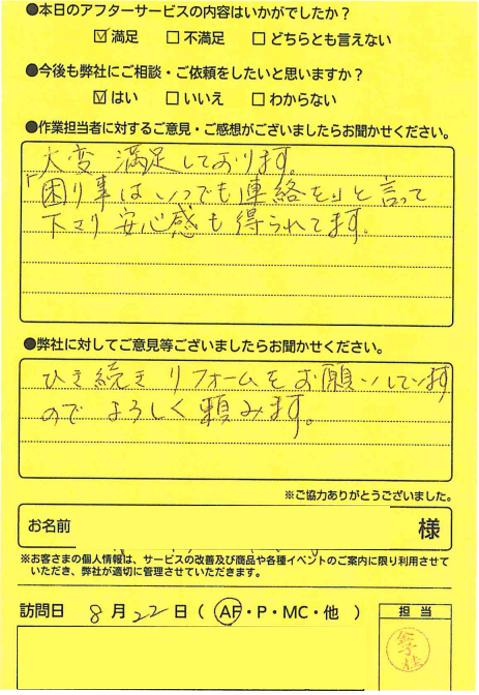 ●本日のアフターサービスの内容はいかがでしたか？
☑満足 □不満足 □どちらとも言えない
●今後も弊社にご相談・ご依頼をしたいと思いますか？
☑はい □いいえ □わからない
●作業担当者に対するご意見・ご感想がございましたらお聞かせください。
大変満足しております。
「困り事はいつでも連絡を」と言って
下さり安心感も得られてます。
●弊社に対してご意見等ございましたらお聞かせください。
ひき続きリフォームをお願いしています
のでよろしく頼みます。
※ご協力ありがとうございました。
お名前 様
※お客さまの個人情報は、サービスの改善及び商品や各種イベントのご案内に限り利用させて
いただき、弊社が適切に管理させていただきます。
訪問日 8月22日（AF・P・MC・他）
担当
金子